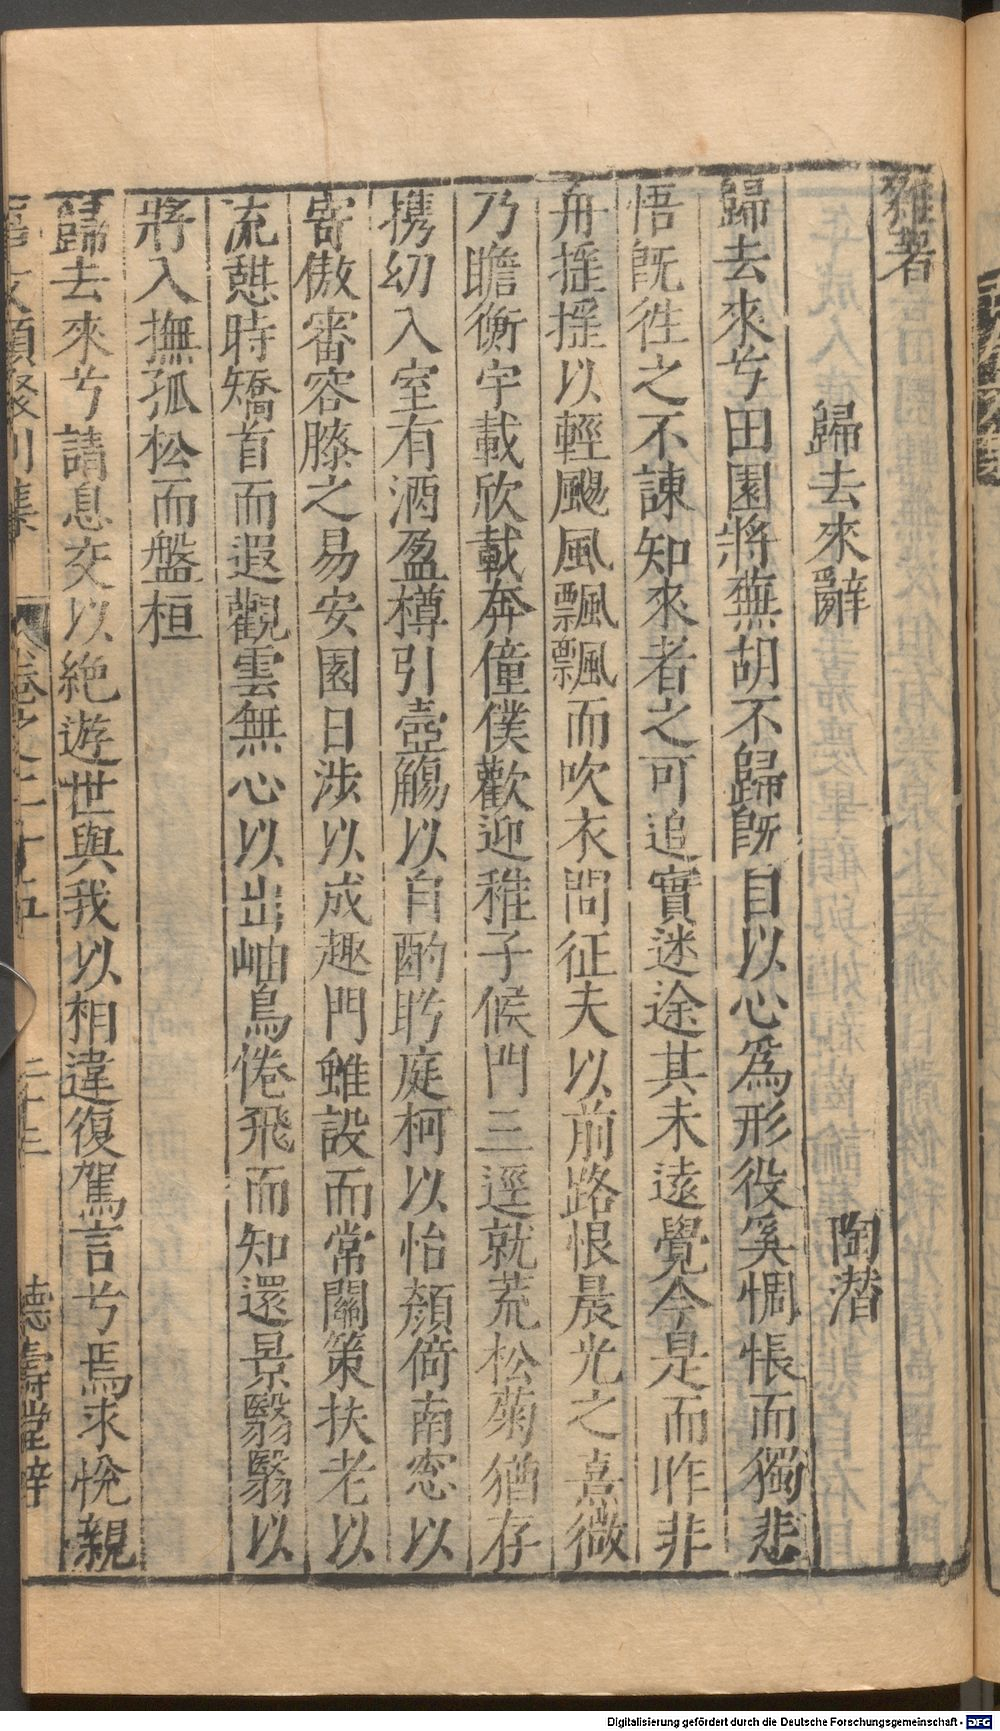 雜著
歸去來辭 陶潛
歸去來兮田園將蕪胡不歸旣自以心爲形役奚惆悵而獨悲
悟旣徃之不諫知來者之可追實迷途其未遠覺今是而昨非
舟揺揺以輕颺風飄飄而吹衣問征夫以前路恨晨光之熹微
乃瞻衡宇載欣載奔僮僕歡迎稚子候門三逕就荒松菊猶存
携幼入室有酒盈樽引壺觴以自酌眄庭柯以怡顏倚南窓以
寄傲審容膝之易安園日涉以成趣門雖設而常關策扶老以
流憇時矯首而遐觀雲無心以出岫鳥倦飛而知還景翳翳以
將入撫孤松而盤桓
歸去來兮請息交以絶遊世與我以相違復駕言兮焉求悅親
文類聚別集 卷之二十五 二十三 德壽堂梓
Digitalisierung gefördert durch die Deutsche Forschungsgemeinschaft - DFG